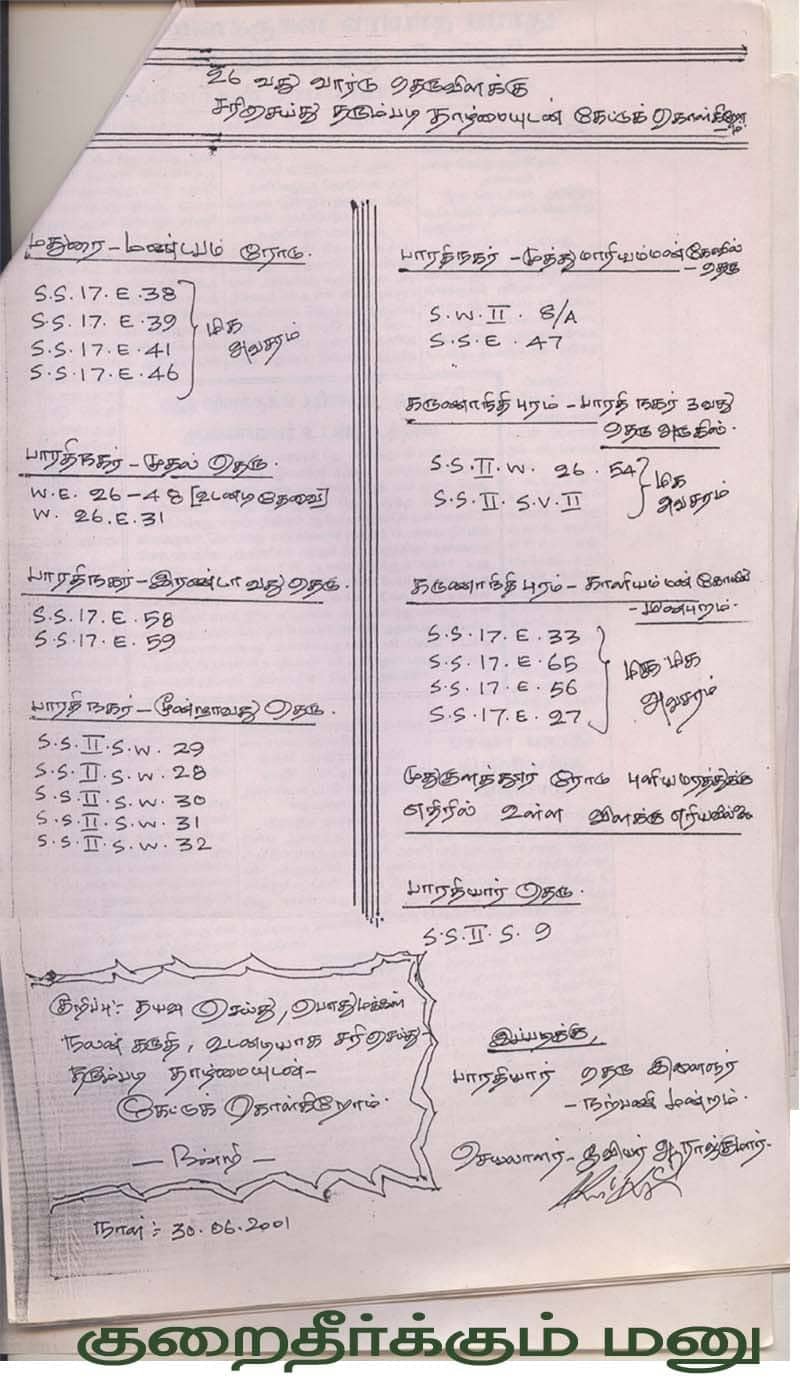 26 வது வார்டு தெருவிளக்கு
சரிசெய்து தரும்படி தாழ்மையுடன் கேட்டுக் கொள்கிறோம்
மதுரை - மண்டபம் ரோடு.
S.S. 17. E. 38
S.S. 17. E. 39
S.S. 17. E. 41
S.S. 17. E. 46
மிக
அவசரம்
பாரதிநகர் - முதல் தெரு.
W.E. 26 - 48 [உடனடி தேவை]
W. 26. E. 31
பாரதிநகர் - இரண்டாவது தெரு.
S.S. 17. E. 58
S.S. 17. E. 59
பாரதி நகர் - மூன்றாவது தெரு.
S.S. II. S. W. 29
S.S. II. S. W. 28
S.S. II. S. W. 30
S.S. II. S. W. 31
S.S. II. S. W. 32
பாரதிநகர் - முத்துமாரியம்மன் கோவில்
- தெரு
S. W. II. 8/A
S. S. E. 47
கருணாநிதி புரம் - பாரதி நகர் 3வது
தெரு அருகில்.
S.S. II. W. 26. 54
S.S. II. S.V. II
மிக
அவசரம்
கருணாநிதி புரம் - காளியம்மன் கோவில்
- பின்புறம்.
S.S. 17. E. 33
S.S. 17. E. 65
S.S. 17. E. 56
S.S. 17. E. 27
மிக மிக
அவசரம்
முதுகுளத்தூர் ரோடு புளியமரத்துக்கு
எதிரில் உள்ள விளக்கு எரியவில்லை
பாரதியார் தெரு.
S.S. II. S. 9
குறிப்பு:- தயவு செய்து, பொதுமக்கள்
நலன் கருதி, உடனடியாக சரிசெய்து-
தரும்படி தாழ்மையுடன்-
கேட்டுக் கொள்கிறோம்.
- நன்றி -
நாள்:- 30.06.2001
இப்படிக்கு,
பாரதியார் தெரு இளைஞர்
- நற்பணி மன்றம்.
செயலாளர்-
குறைதீர்க்கும் மனு